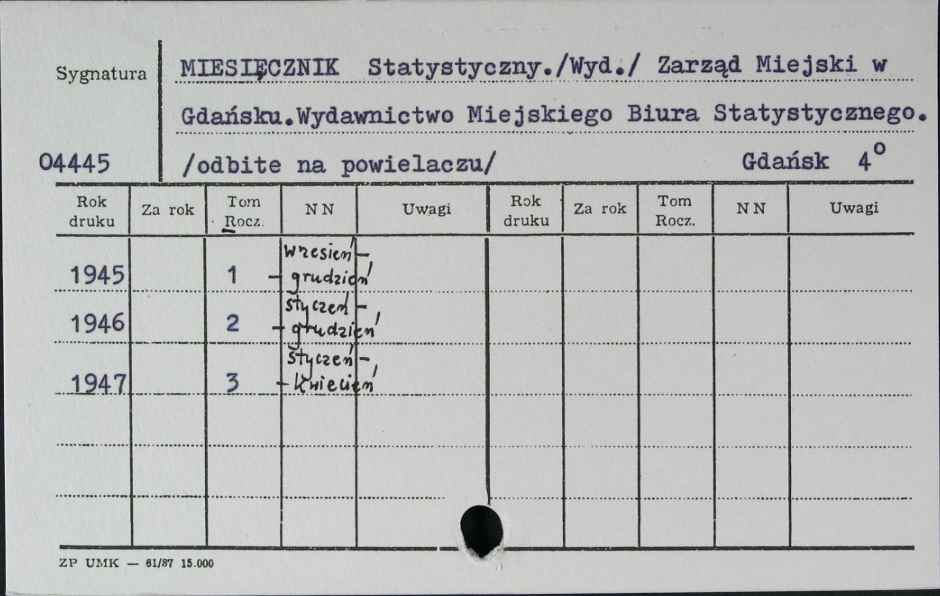 Sygnatura
MIESIĘCZNIK Statystyczny./Wyd./ Zarząd Miejski w
Gdańsku.Wydawnictwo Miejskiego Biura Statystycznego.
04445 /odbite na powielaczu/ Gdańsk 4°
Rok druku Za rok Tom Rocz. NN Uwagi Rok druku Za rok Tom Rocz. NN Uwagi
1945 1 wrzesień – – grudzień
1946 2 styczeń – – grudzień
1947 3 styczeń – – kwiecień
ZP UMK — 61/87 15.000